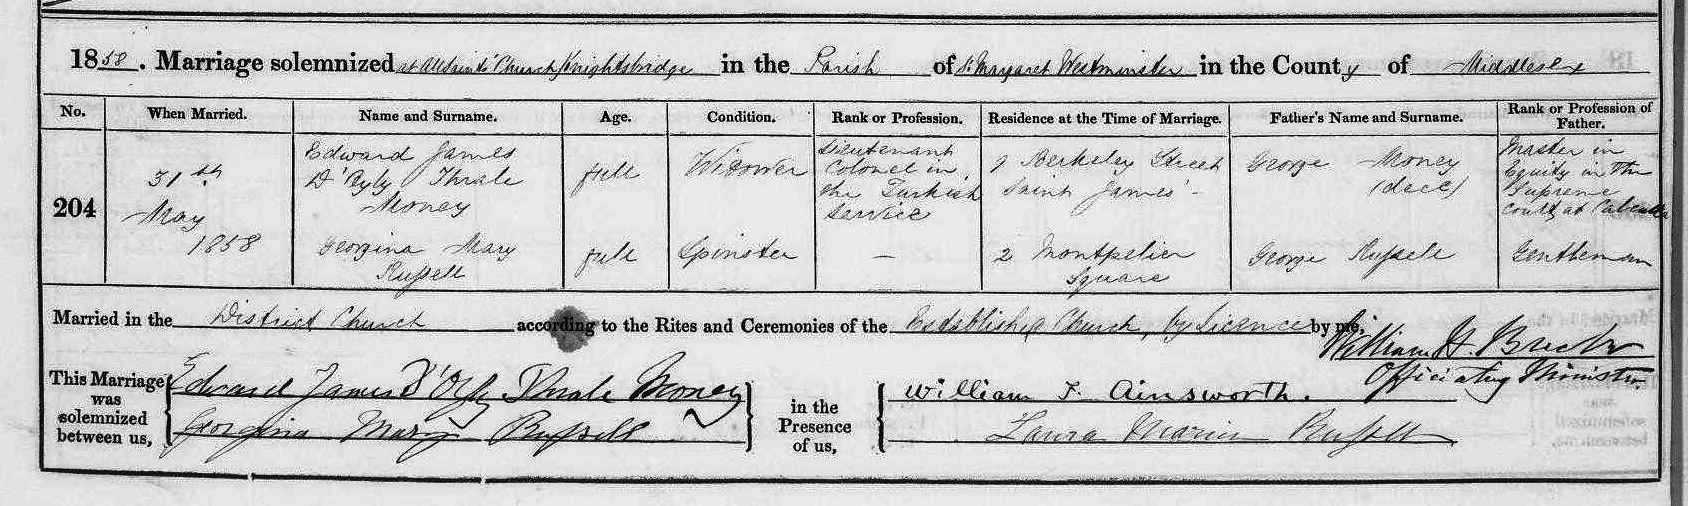 1858. Marriage solemnized at All Saints' Church Knightsbridge in the Parish of St. Margaret Westminster in the County of Middlesex
No. When Married. Name and Surname. Age. Condition. Rank or Profession. Residence at the Time of Marriage. Father's Name and Surname. Rank or Profession of Father.
204
31st
May
1858
Edward James
D'Oyly Thrale
Money
full
Widower
Lieutenant
Colonel in
the Turkish
Service
Berkeley Street
Saint James'
George Money
(decd)
Master in
Equity in the
Supreme
Court at Calcutta
Georgina Mary
Russell
full
Spinster
—
2 Montpelier
Square
George Russell
Gentleman
Married in the District Church according to the Rites and Ceremonies of the Established Church, by Licence by me,
William H.
Officiating Minister
This Marriage was solemnized between us,
Edward James D'Oyly Thrale Money
Georgina Mary Russell
in the Presence of us,
William F. Ainsworth.
Laura Maria Russell